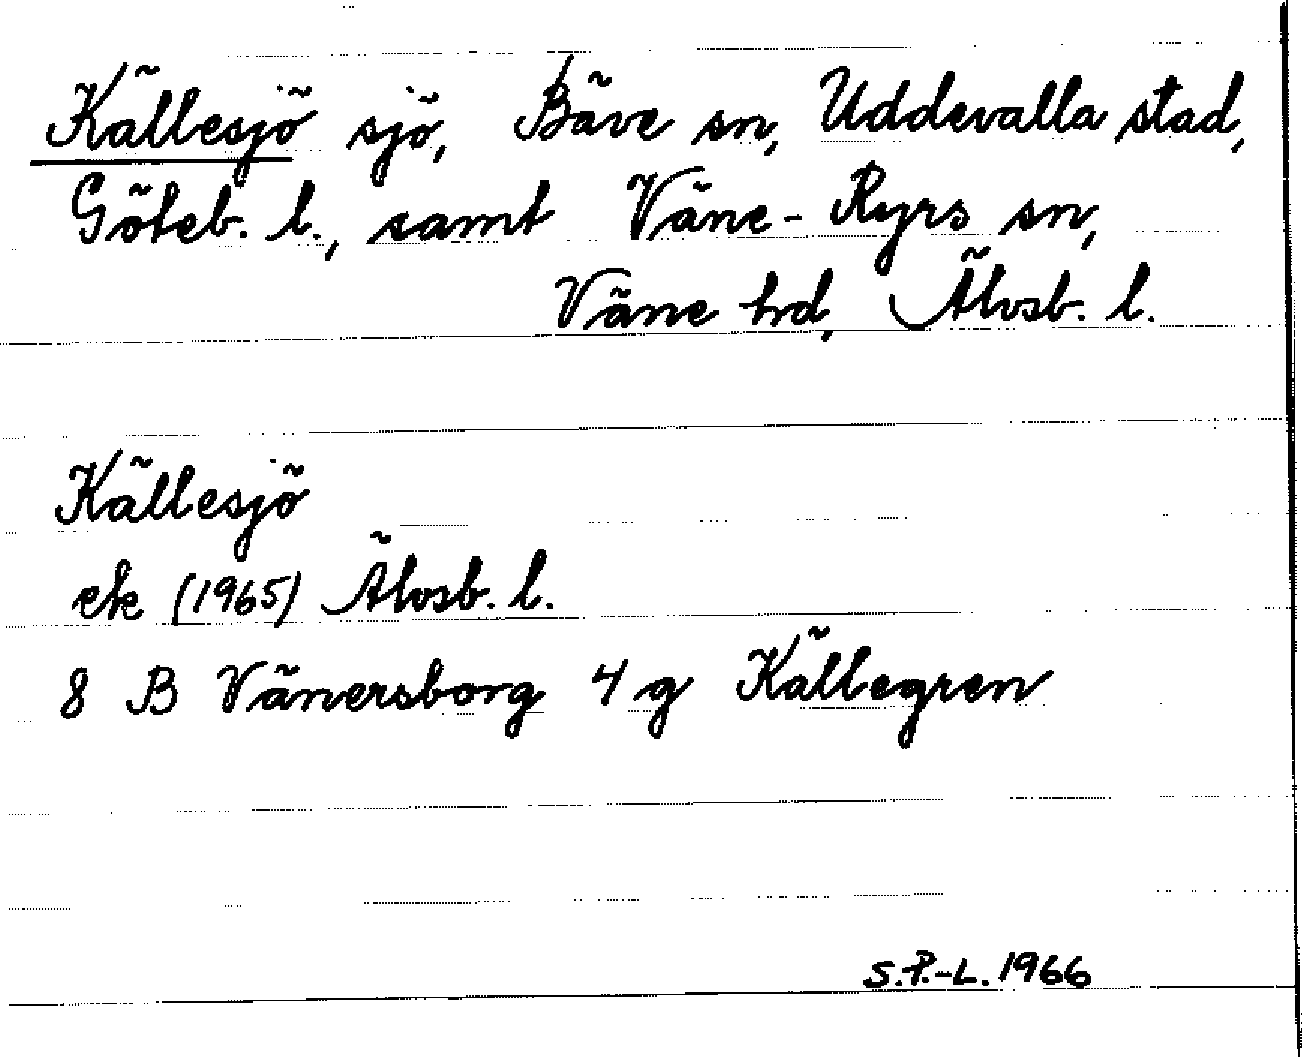 Källesjö sjö, Bäve sn, Uddevalla stad,
Göteb. l., samt Väne-Ryrs sn,
Väne hd, Älvsb. l.
Källesjö
ek (1965) Älvsb. l.
8 B Vänersborg 4 g Källegren
S.P.-L. 1966